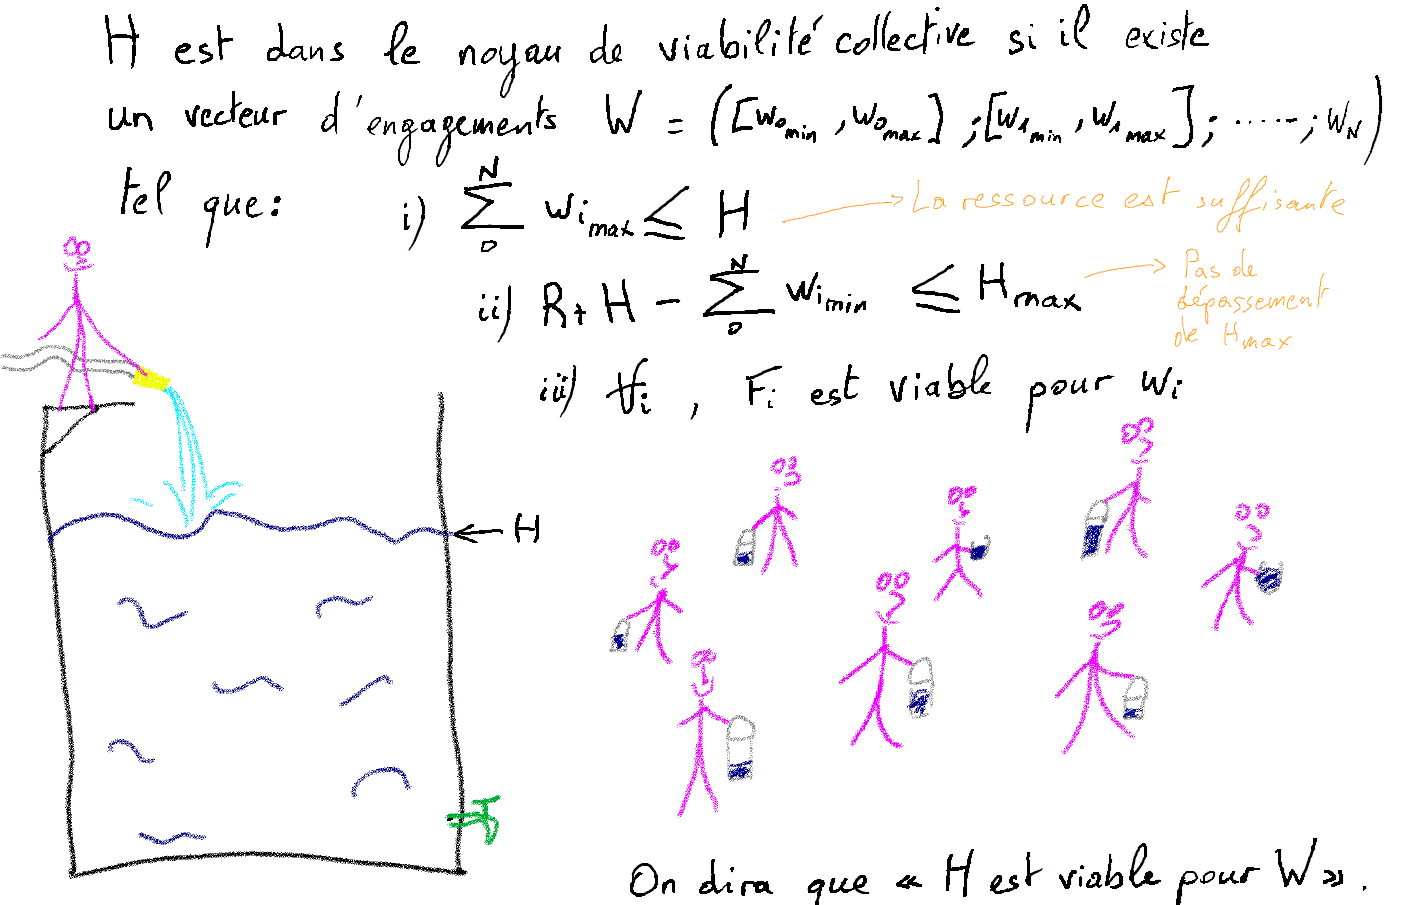 H est dans le noyau de viabilité collective si il existe
un vecteur d'engagements W = ([w0min , w0max] ; [w1min , w1max] ; ..... ; WN)
tel que : i) ∑₀ᴺ wimax ≤ H → La ressource est suffisante
ii) R + H - ∑₀ᴺ wimin ≤ Hmax → Pas de
dépassement
de Hmax
iii) ∀i , Fi est viable pour wi
← H
On dira que « H est viable pour W ».